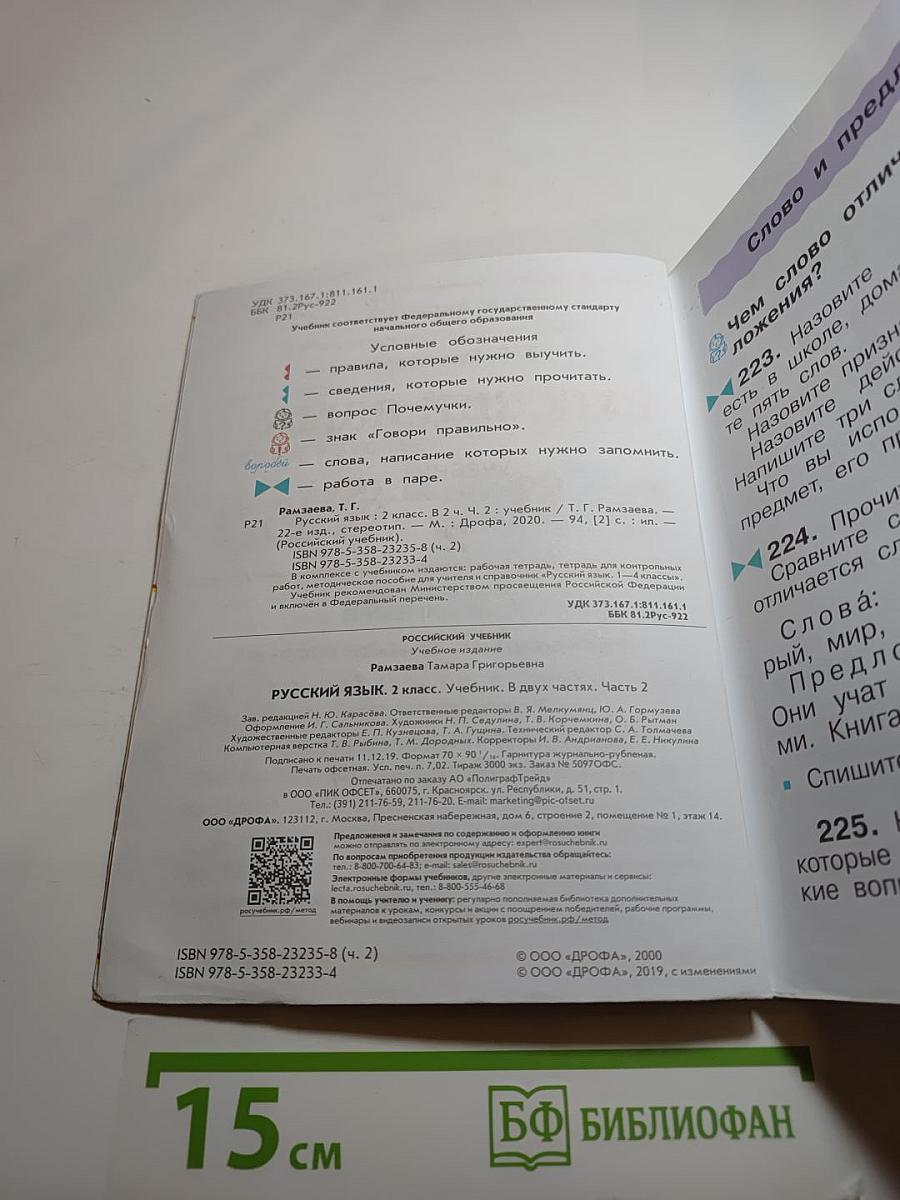 УДК 373.167.1:811.161.1
ББК 81.2Рус-922
Р21
Учебник соответствует Федеральному государственному стандарту
начального общего образования
Условные обозначения
— правила, которые нужно выучить.
— сведения, которые нужно прочитать.
— вопрос Почемучки.
— знак «Говори правильно».
воробей — слова, написание которых нужно запомнить.
— работа в паре.
Рамзаева, Т. Г.
Р21 Русский язык : 2 класс. В 2 ч. Ч. 2 : учебник / Т. Г. Рамзаева. —
22-е изд., стереотип. — М. : Дрофа, 2020. — 94, [2] с. : ил. —
(Российский учебник).
ISBN 978-5-358-23235-8 (ч. 2)
ISBN 978-5-358-23233-4
В комплексе с учебником издаются: рабочая тетрадь, тетрадь для контрольных
работ, методическое пособие для учителя и справочник «Русский язык. 1—4 классы».
Учебник рекомендован Министерством просвещения Российской Федерации
и включён в Федеральный перечень.
УДК 373.167.1:811.161.1
ББК 81.2Рус-922
РОССИЙСКИЙ УЧЕБНИК
Учебное издание
Рамзаева Тамара Григорьевна
РУССКИЙ ЯЗЫК. 2 класс. Учебник. В двух частях. Часть 2
Зав. редакцией Н. Ю. Карасёва. Ответственные редакторы В. Я. Мелкумянц, Ю. А. Гормузева
Оформление И. Г. Сальникова. Художники Н. П. Седулина, Т. В. Корчемкина, О. Б. Рытман
Художественные редакторы Е. П. Кузнецова, Т. А. Гущина. Технический редактор С. А. Толмачева
Компьютерная верстка Т. В. Рыбина, Т. М. Дородных. Корректоры И. В. Андрианова, Е. Е. Никулина
Подписано к печати 11.12.19. Формат 70 × 90 1/16. Гарнитура журнально-рубленая.
Печать офсетная. Усл. печ. л. 7,02. Тираж 3000 экз. Заказ № 5097ОФС.
Отпечатано по заказу АО «ПолиграфТрейд»
в ООО «ПИК ОФСЕТ», 660075, г. Красноярск. ул. Республики, д. 51, стр. 1.
Тел.: (391) 211-76-59, 211-76-20. E-mail: marketing@pic-ofset.ru
ООО «ДРОФА». 123112, г. Москва, Пресненская набережная, дом 6, строение 2, помещение № 1, этаж 14.
Предложения и замечания по содержанию и оформлению книги
можно отправлять по электронному адресу: expert@rosuchebnik.ru
По вопросам приобретения продукции издательства обращайтесь:
тел.: 8-800-700-64-83; e-mail: sales@rosuchebnik.ru
Электронные формы учебников, другие электронные материалы и сервисы:
lecta.rosuchebnik.ru, тел.: 8-800-555-46-68
В помощь учителю и ученику: регулярно пополняемая библиотека дополнительных
материалов к урокам, конкурсы и акции с поощрением победителей, рабочие программы,
вебинары и видеозаписи открытых уроков росучебник.рф/метод
росучебник.рф/метод
ISBN 978-5-358-23235-8 (ч. 2)
ISBN 978-5-358-23233-4
© ООО «ДРОФА», 2000
© ООО «ДРОФА», 2019, с изменениями
Слово и предл
Чем слово отлич
ложения?
223. Назовите
есть в школе, дома
те пять слов.
Назовите призн
Назовите дейс
Напишите три сл
Что вы испо
предмет, его пр
224. Прочит
Сравните с
отличается сл
Слова́:
рый, мир,
Предло
Они учат
ми. Книга
Спишите
225. Н
которые
кие вопр
15 см
БФ БИБЛИОФАН